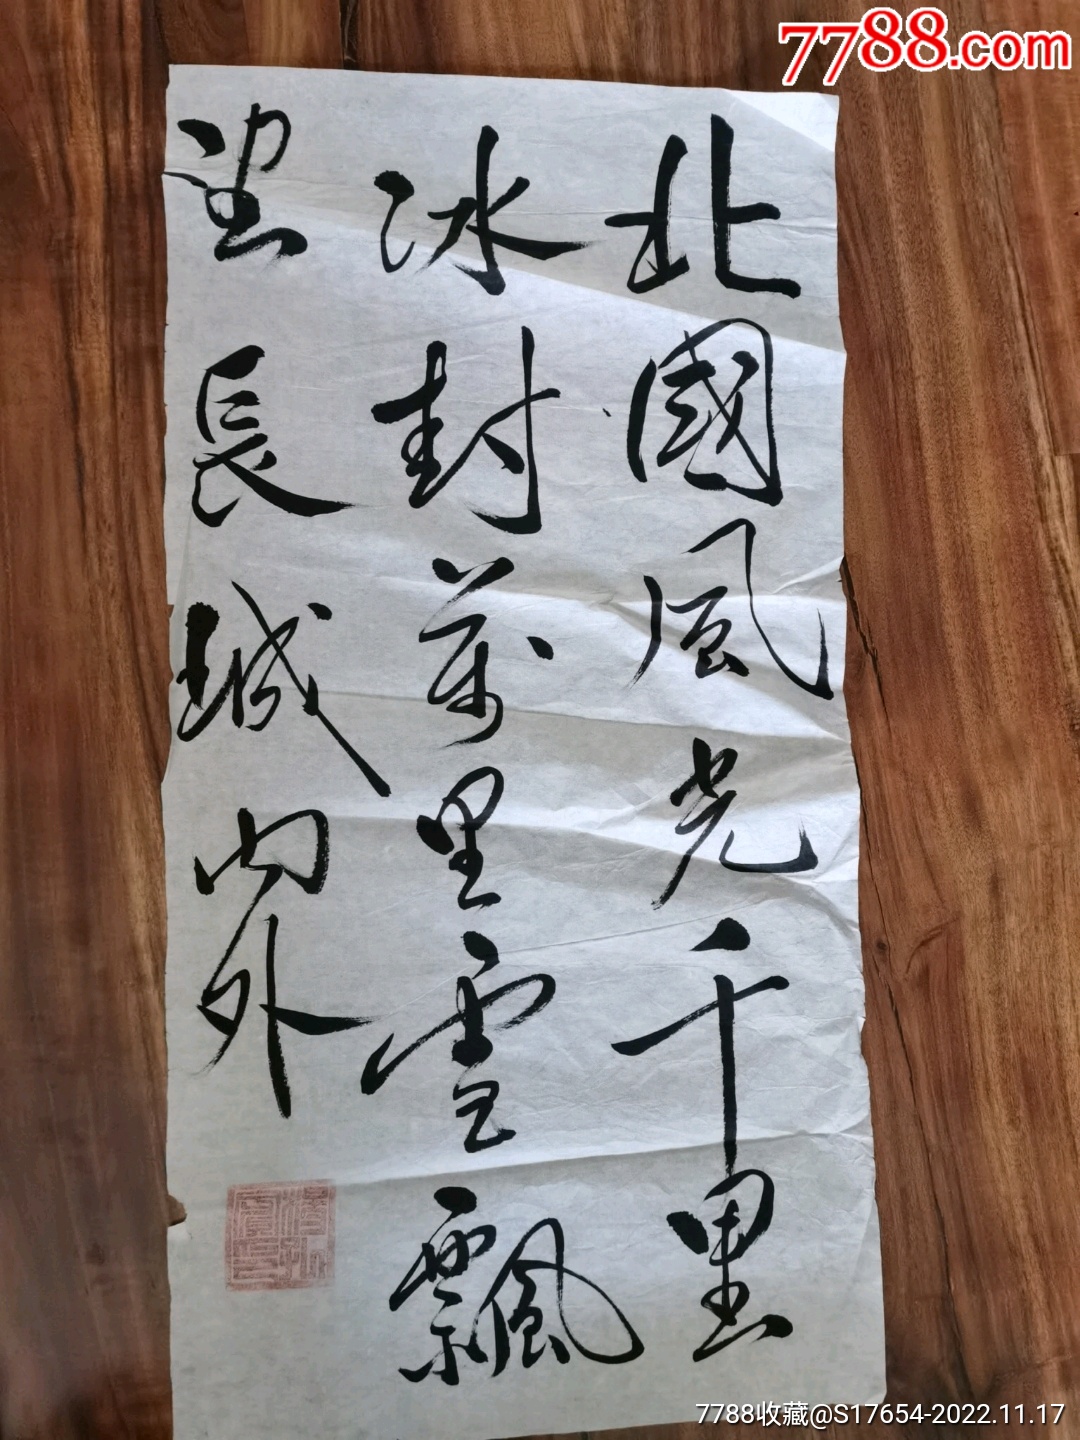 7788.com
北國風光千里
冰封萬里雪飄
望長城內外
7788收藏@S17654-2022.11.17